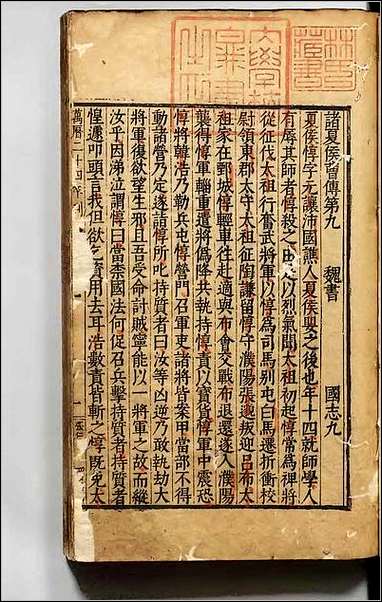 林氏藏書
諸夏侯曹傳第九　魏書　國志九
夏侯惇字元讓沛國譙人夏侯嬰之後也年十四就師學人
有辱其師者惇殺之由是以烈氣聞太祖初起惇常為裨將
從征伐太祖行奮武將軍以惇為司馬別屯白馬遷折衝校
尉領東郡太守太祖征陶謙留惇守濮陽張邈叛迎呂布太
祖家在鄄城惇輕車往赴適與布會交戰布退還遂入濮陽
襲得惇軍輜重遣將偽降共執持惇責以寶貨惇軍中震恐
惇將韓浩乃勒兵屯惇營門召軍吏諸將皆案甲當部不得
動諸營乃定遂詣惇所叱持質者曰汝等凶逆乃敢執劫大
將軍復欲望生邪且吾受命討賊寧能以一將軍之故而縱
汝乎因涕泣謂惇曰當柰國法何促召兵擊持質者持質者
惶遽叩頭言我但欲乞資用去耳浩數責皆斬之惇既免太
萬曆二十四年刊